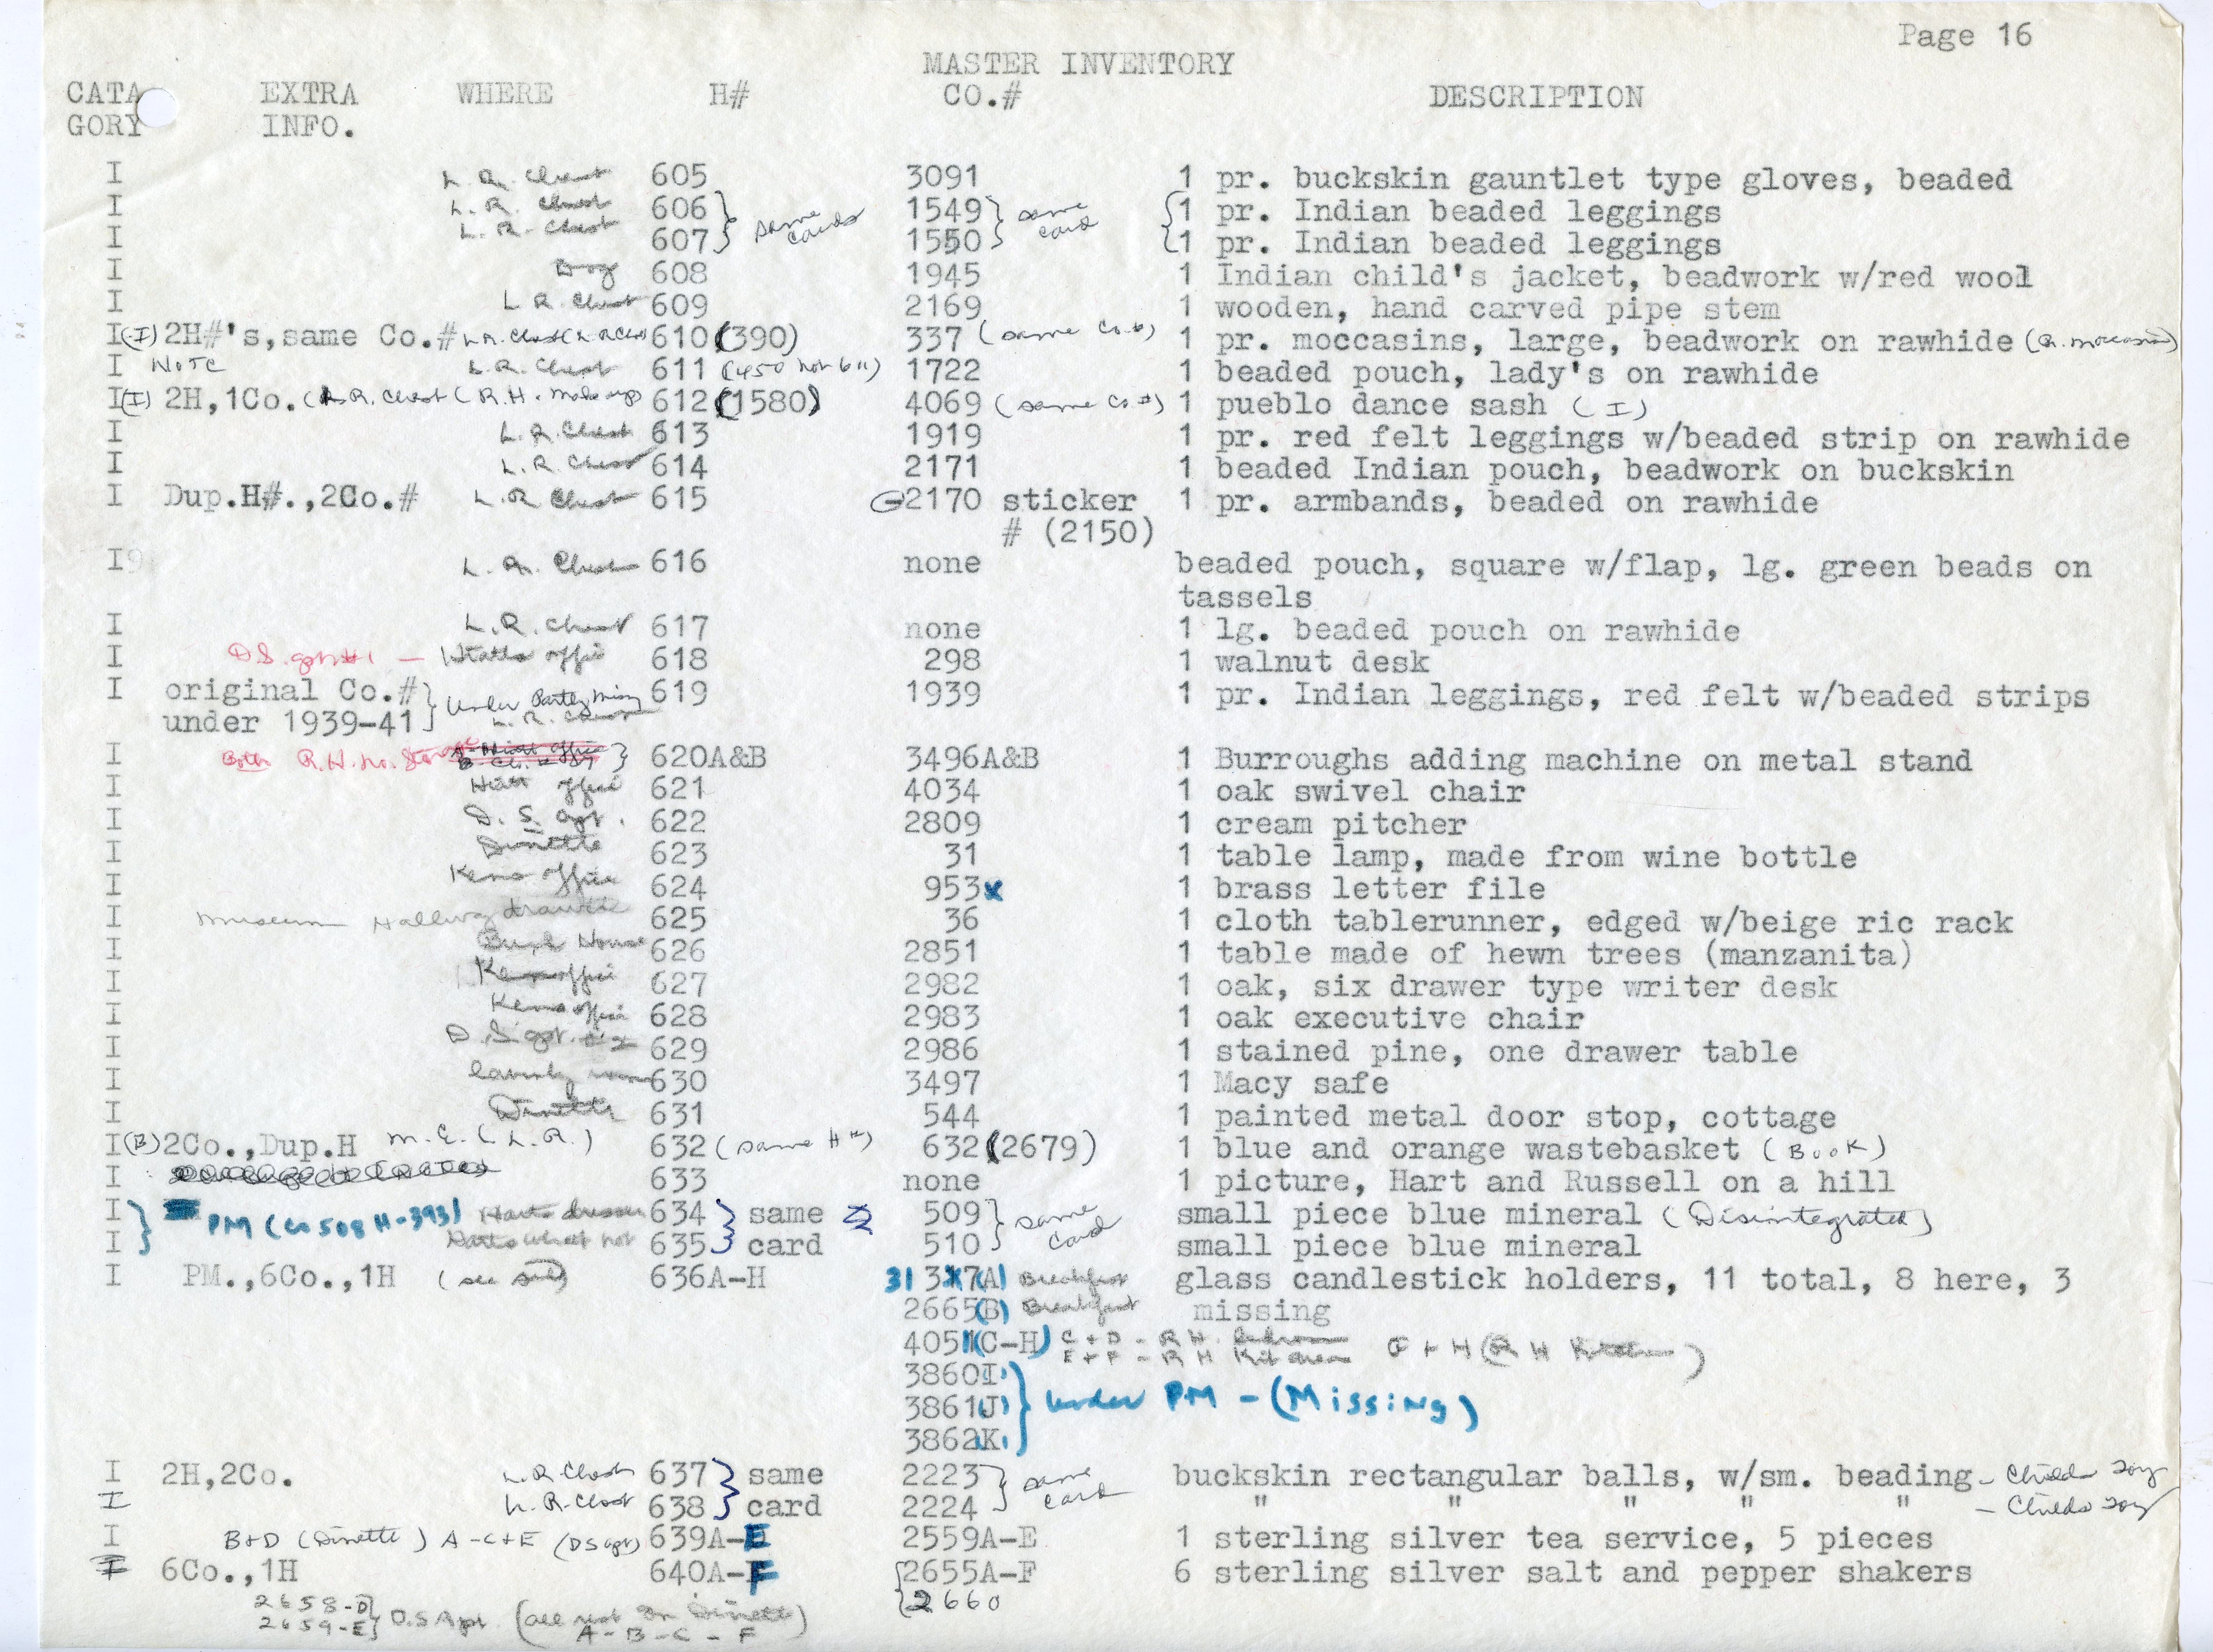 Page 16
MASTER INVENTORY
CATA EXTRA WHERE H# CO.# DESCRIPTION
GORY INFO.
I L.R. Chest 605 3091 1 pr. buckskin gauntlet type gloves, beaded
I L.R. Chest 606 } same cards 1549 } same card { 1 pr. Indian beaded leggings
I L.R. Chest 607 1550 1 pr. Indian beaded leggings
I 608 1945 1 Indian child's jacket, beadwork w/red wool
I L.R. Chest 609 2169 1 wooden, hand carved pipe stem
I(I) 2H#'s,same Co.# L.R. Chest (L.R. Chest) 610 (390) 337 (same Co.#) 1 pr. moccasins, large, beadwork on rawhide
I NOTE L.R. Chest 611 (450 not 611) 1722 1 beaded pouch, lady's on rawhide
I(I) 2H,1Co. (L.R. Chest (R.H. 612 (1580) 4069 (same Co.#) 1 pueblo dance sash (I)
I L.R. Chest 613 1919 1 pr. red felt leggings w/beaded strip on rawhide
I L.R. Chest 614 2171 1 beaded Indian pouch, beadwork on buckskin
I Dup.H#.,2Co.# L.R. Chest 615 2170 sticker 1 pr. armbands, beaded on rawhide
# (2150)
I L.R. Chest 616 none beaded pouch, square w/flap, lg. green beads on
tassels
I L.R. Chest 617 none 1 lg. beaded pouch on rawhide
I D.S. apt #1 — Hiatts office 618 298 1 walnut desk
I original Co.# } Under Partly Missing 619 1939 1 pr. Indian leggings, red felt w/beaded strips
under 1939-41 L.R. Chest
I Both R.H. no. Storage } 620A&B 3496A&B 1 Burroughs adding machine on metal stand
I Hiatt office 621 4034 1 oak swivel chair
I D.S. apt. 622 2809 1 cream pitcher
I Dinette 623 31 1 table lamp, made from wine bottle
I Kens office 624 953x 1 brass letter file
I museum Hallway drawer 625 36 1 cloth tablerunner, edged w/beige ric rack
I House 626 2851 1 table made of hewn trees (manzanita)
I Kens office 627 2982 1 oak, six drawer type writer desk
I Kens office 628 2983 1 oak executive chair
I D.S. apt. #2 629 2986 1 stained pine, one drawer table
I laundry room 630 3497 1 Macy safe
I Dinette 631 544 1 painted metal door stop, cottage
I(B) 2Co.,Dup.H M.E. (L.R.) 632 (same H#) 632 (2679) 1 blue and orange wastebasket (BOOK)
I 633 none 1 picture, Hart and Russell on a hill
I } PM (Co 508 H-393) Harts dresser 634 } same 509 } same card small piece blue mineral (Disintegrated)
I Harts what not 635 card 510 small piece blue mineral
I PM.,6Co.,1H 636A-H 31 7(A) Breakfast glass candlestick holders, 11 total, 8 here, 3
2665(B) Breakfast missing
4051(C-H) C+D - RH E+F - RH Kitchen G+H (RH Kitchen)
3860I } under PM - (Missing)
3861(J)
3862K
I 2H,2Co. L.R. Chest 637 } same 2223 } same card buckskin rectangular balls, w/sm. beading - Childs Toy
I L.R. Chest 638 card 2224 " " " " " - Childs Toy
I B+D (Dinette) A-C+E (DS apt) 639A-E 2559A-E 1 sterling silver tea service, 5 pieces
I 6Co.,1H 640A-F 2655A-F 6 sterling silver salt and pepper shakers
2658-D } D.S Apt. (all rest in Dinette) 2660
2659-E A-B-C-F